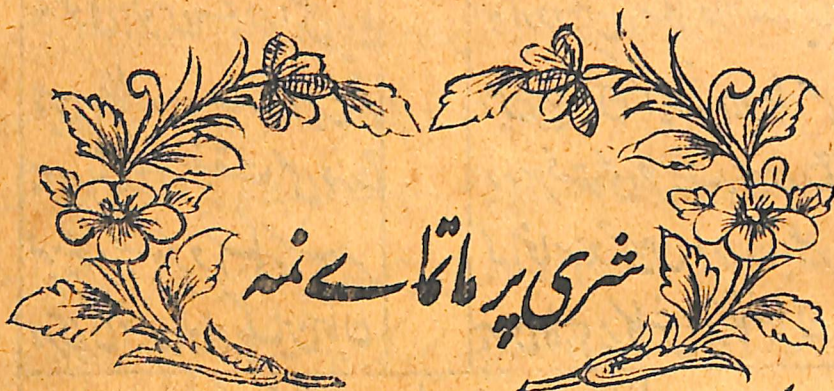 شری پرماتماے نمہ